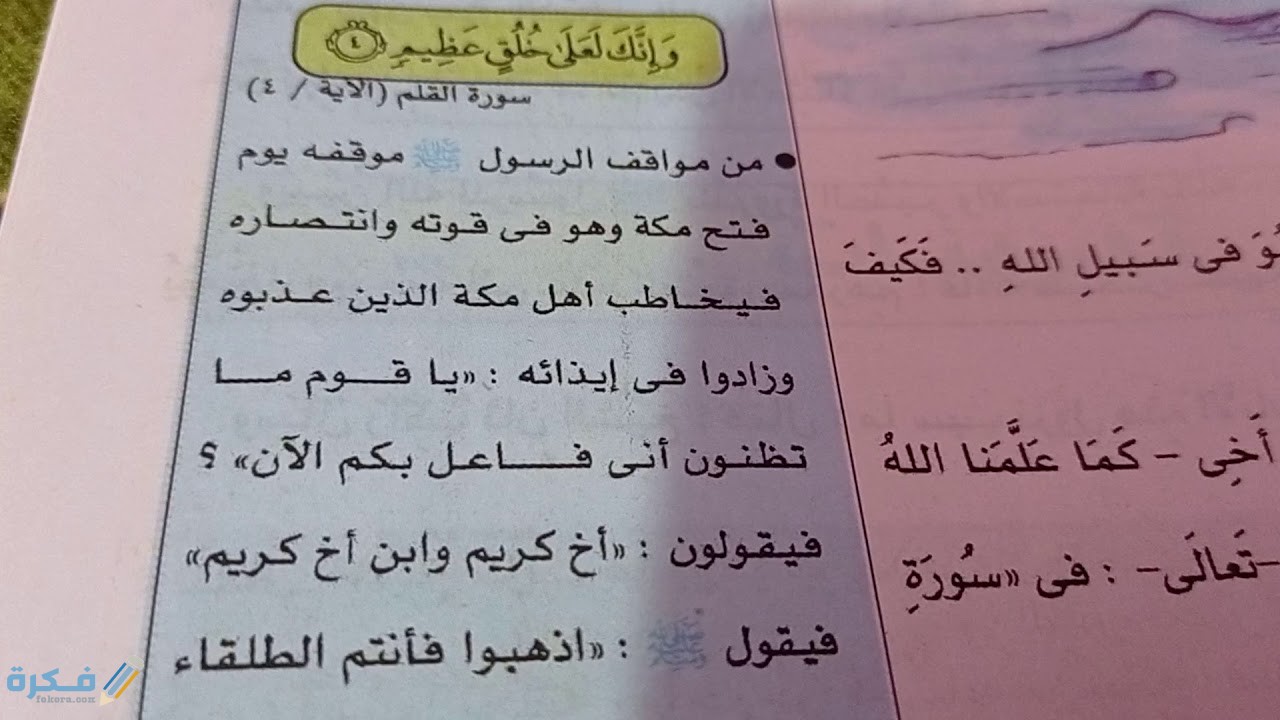 وَإِنَّكَ لَعَلَىٰ خُلُقٍ عَظِيمٍ ٤
سورة القلم (الآية / ٤)
● من مواقف الرسول ﷺ موقفه يوم
فتح مكة وهو فى قوته وانتصاره
فيخاطب أهل مكة الذين عذبوه
وزادوا فى إيذائه : «يا قوم ما
تظنون أنى فاعل بكم الآن» ؟
فيقولون : «أخ كريم وابن أخ كريم»
فيقول ﷺ : «اذهبوا فأنتم الطلقاء
فى سَبِيلِ اللهِ .. فَكَيفَ
أَخِى - كَمَا عَلَّمَنا اللهُ
-تَعالَى- : فى «سُورَةِ
فكرة
fekera.com